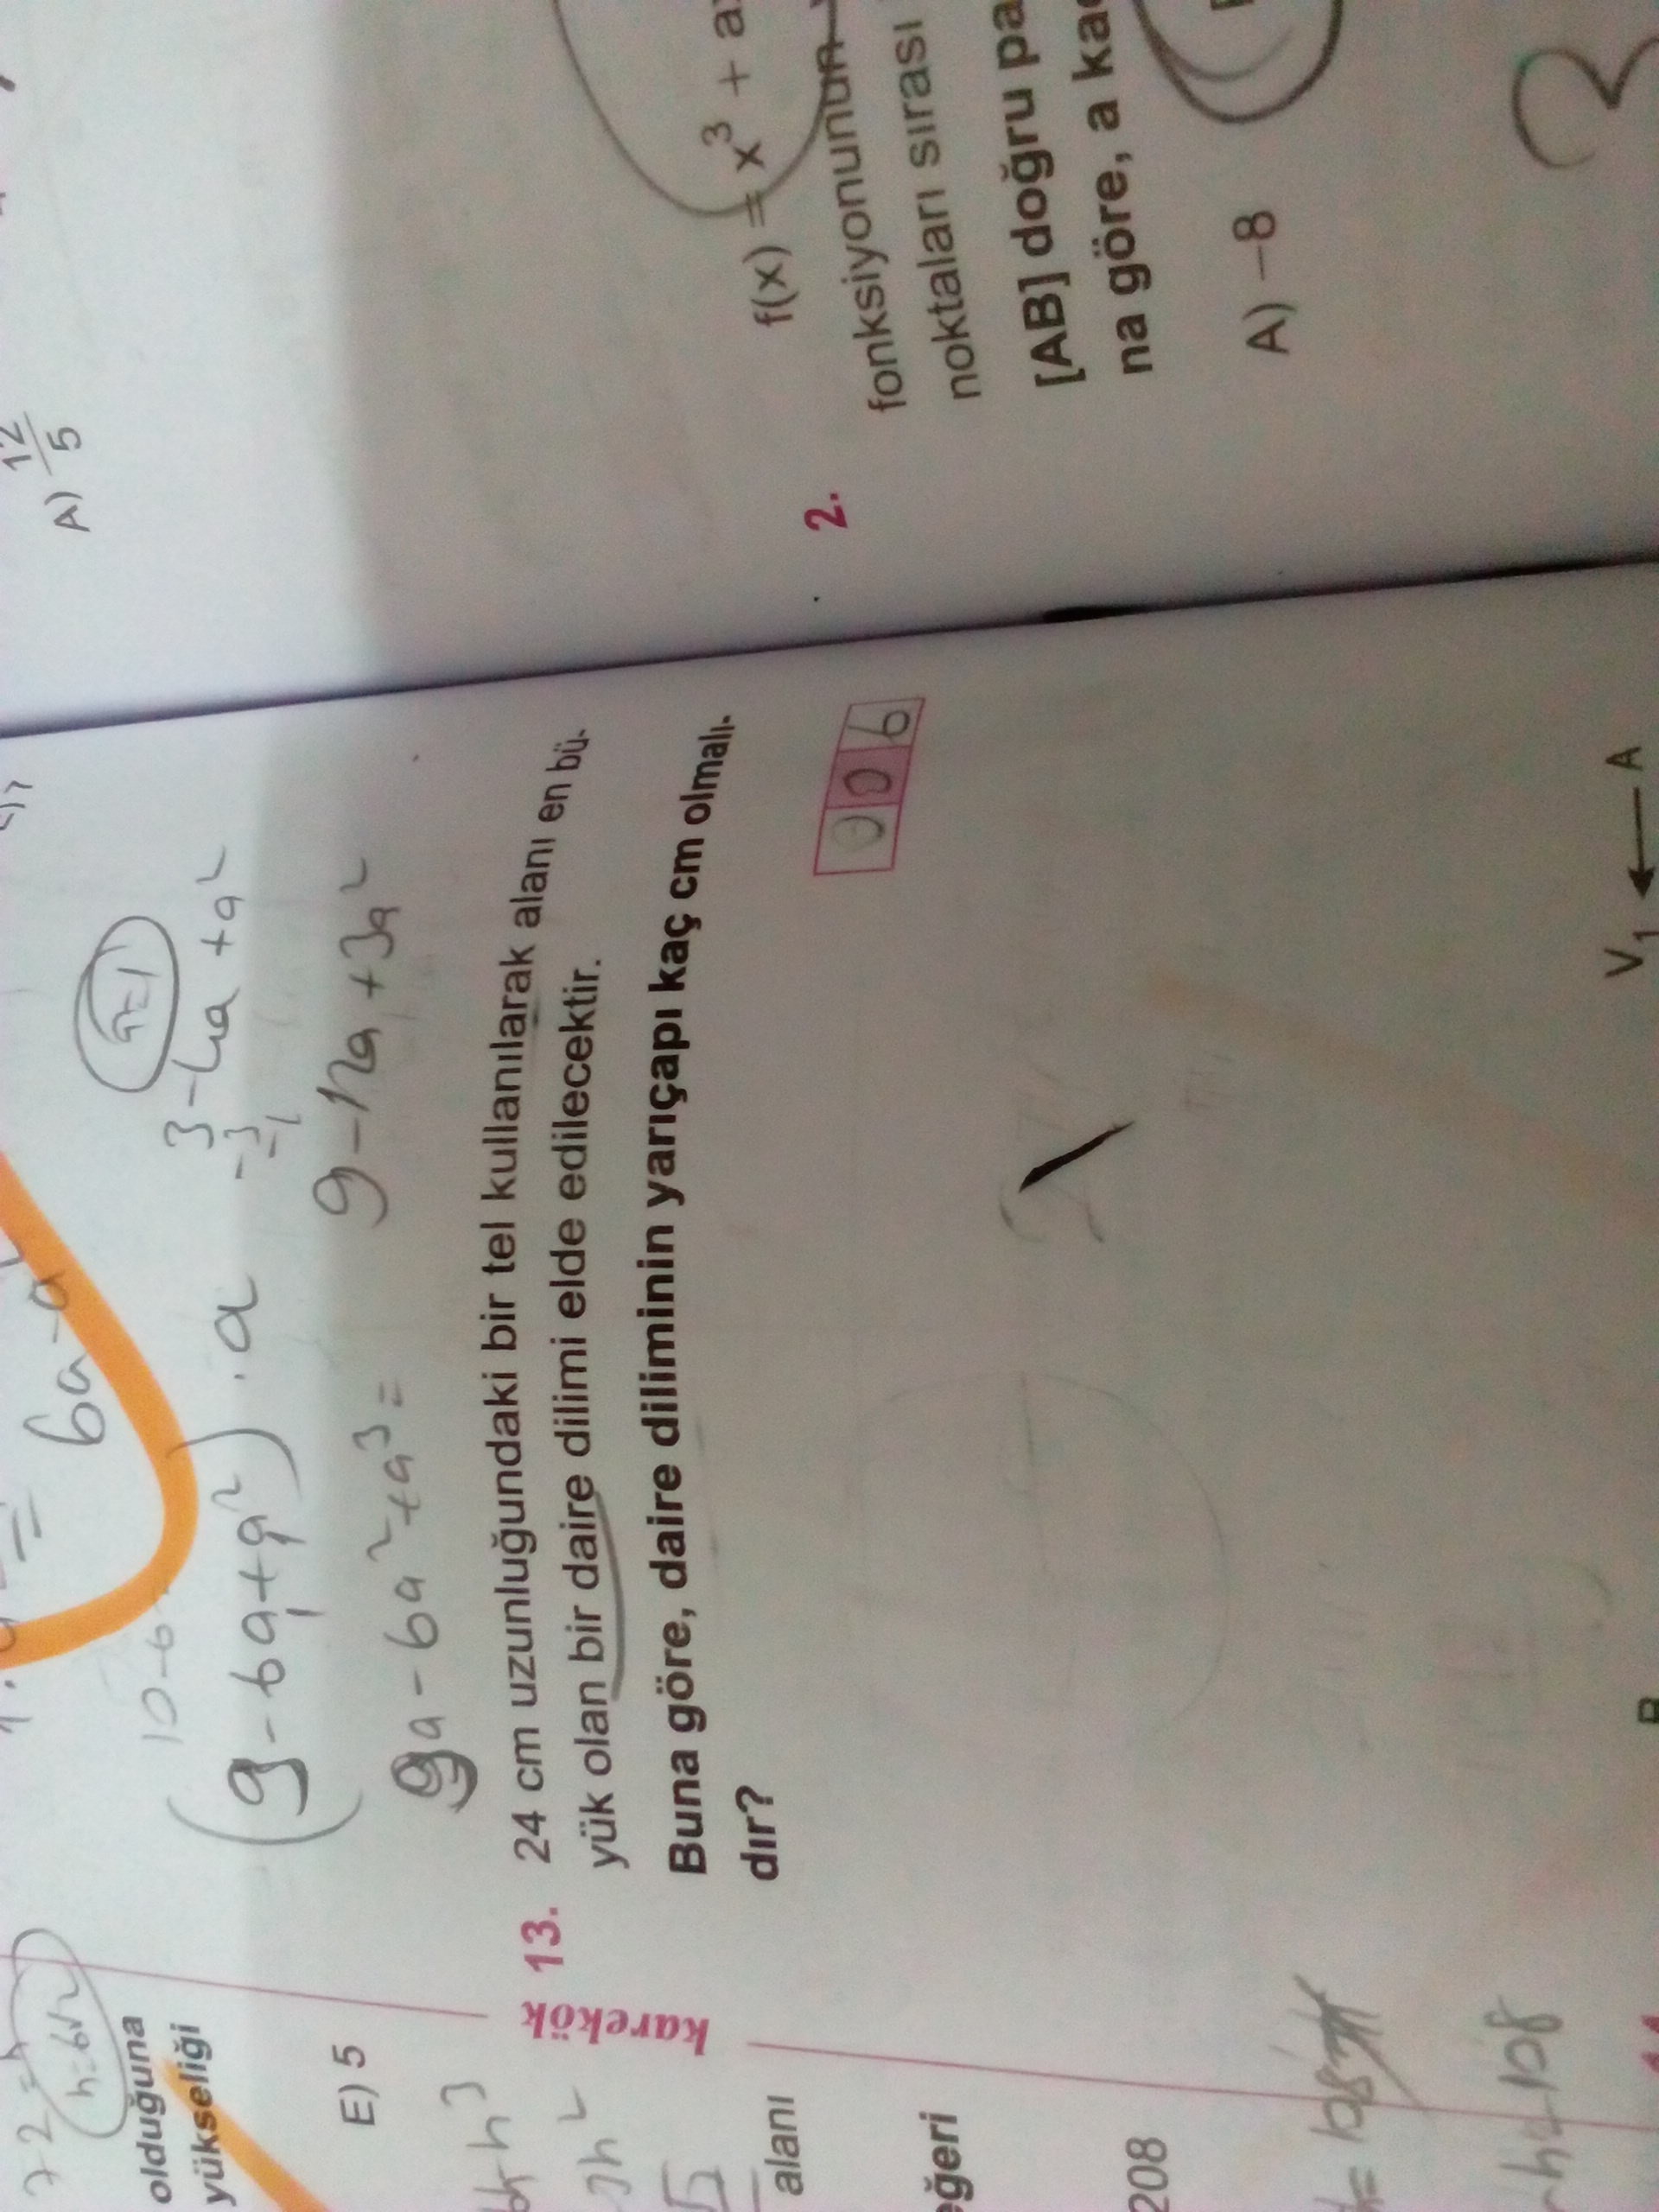 7+2=h
h=6√2
olduğuna
yükseliği
E) 5
alanı
eğeri
208
karekök
6a-a
10-6
(9-6a+a²).a
3-4a+a²
-3
-1
a=1
9a-6a²+a³=
9-12a+3a²
13. 24 cm uzunluğundaki bir tel kullanılarak alanı en bü-
yük olan bir daire dilimi elde edilecektir.
Buna göre, daire diliminin yarıçapı kaç cm olmalı-
dır?
0 0 6
V₁ ← A
B
A) 12/5
2.
f(x) = x³ + a
fonksiyonunun
noktaları sırası
[AB] doğru pa
na göre, a ka
A) –8